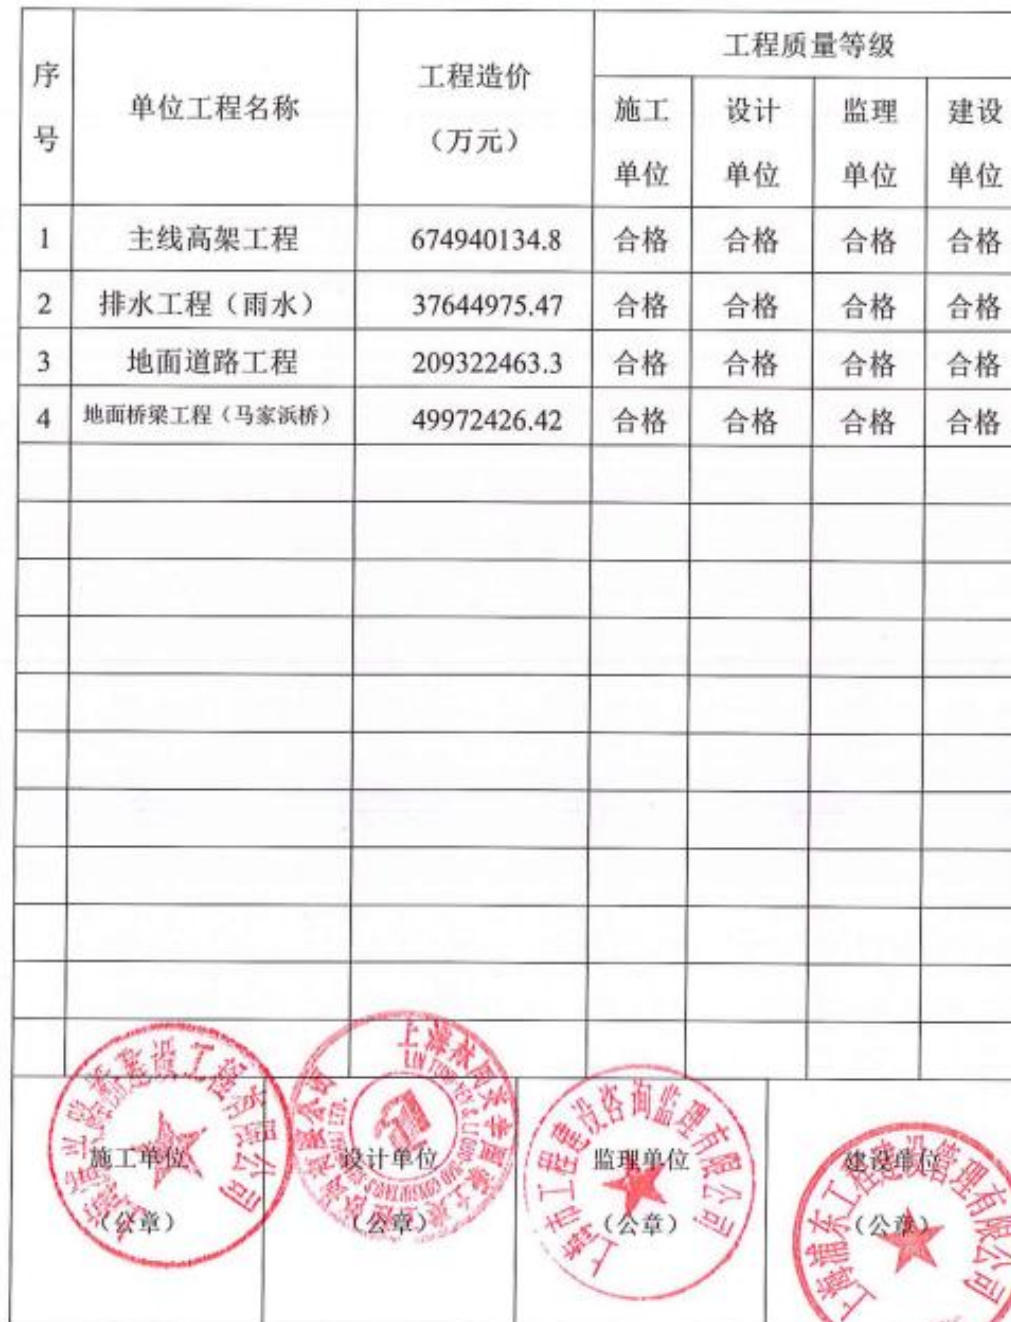 序号 单位工程名称 工程造价（万元） 工程质量等级
施工单位 设计单位 监理单位 建设单位
1 主线高架工程 674940134.8 合格 合格 合格 合格
2 排水工程（雨水） 37644975.47 合格 合格 合格 合格
3 地面道路工程 209322463.3 合格 合格 合格 合格
4 地面桥梁工程（马家浜桥） 49972426.42 合格 合格 合格 合格
施工单位 设计单位 监理单位 建设单位
（公章） （公章） （公章） （公章）
路桥建设工程有限公司
上海林同炎李国豪土建工程咨询有限公司
上海市工程建设咨询监理有限公司
上海浦东工程建设管理有限公司